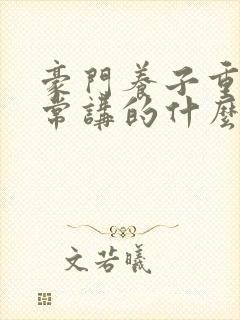 豪門養子重
常講的什麼
文若曦